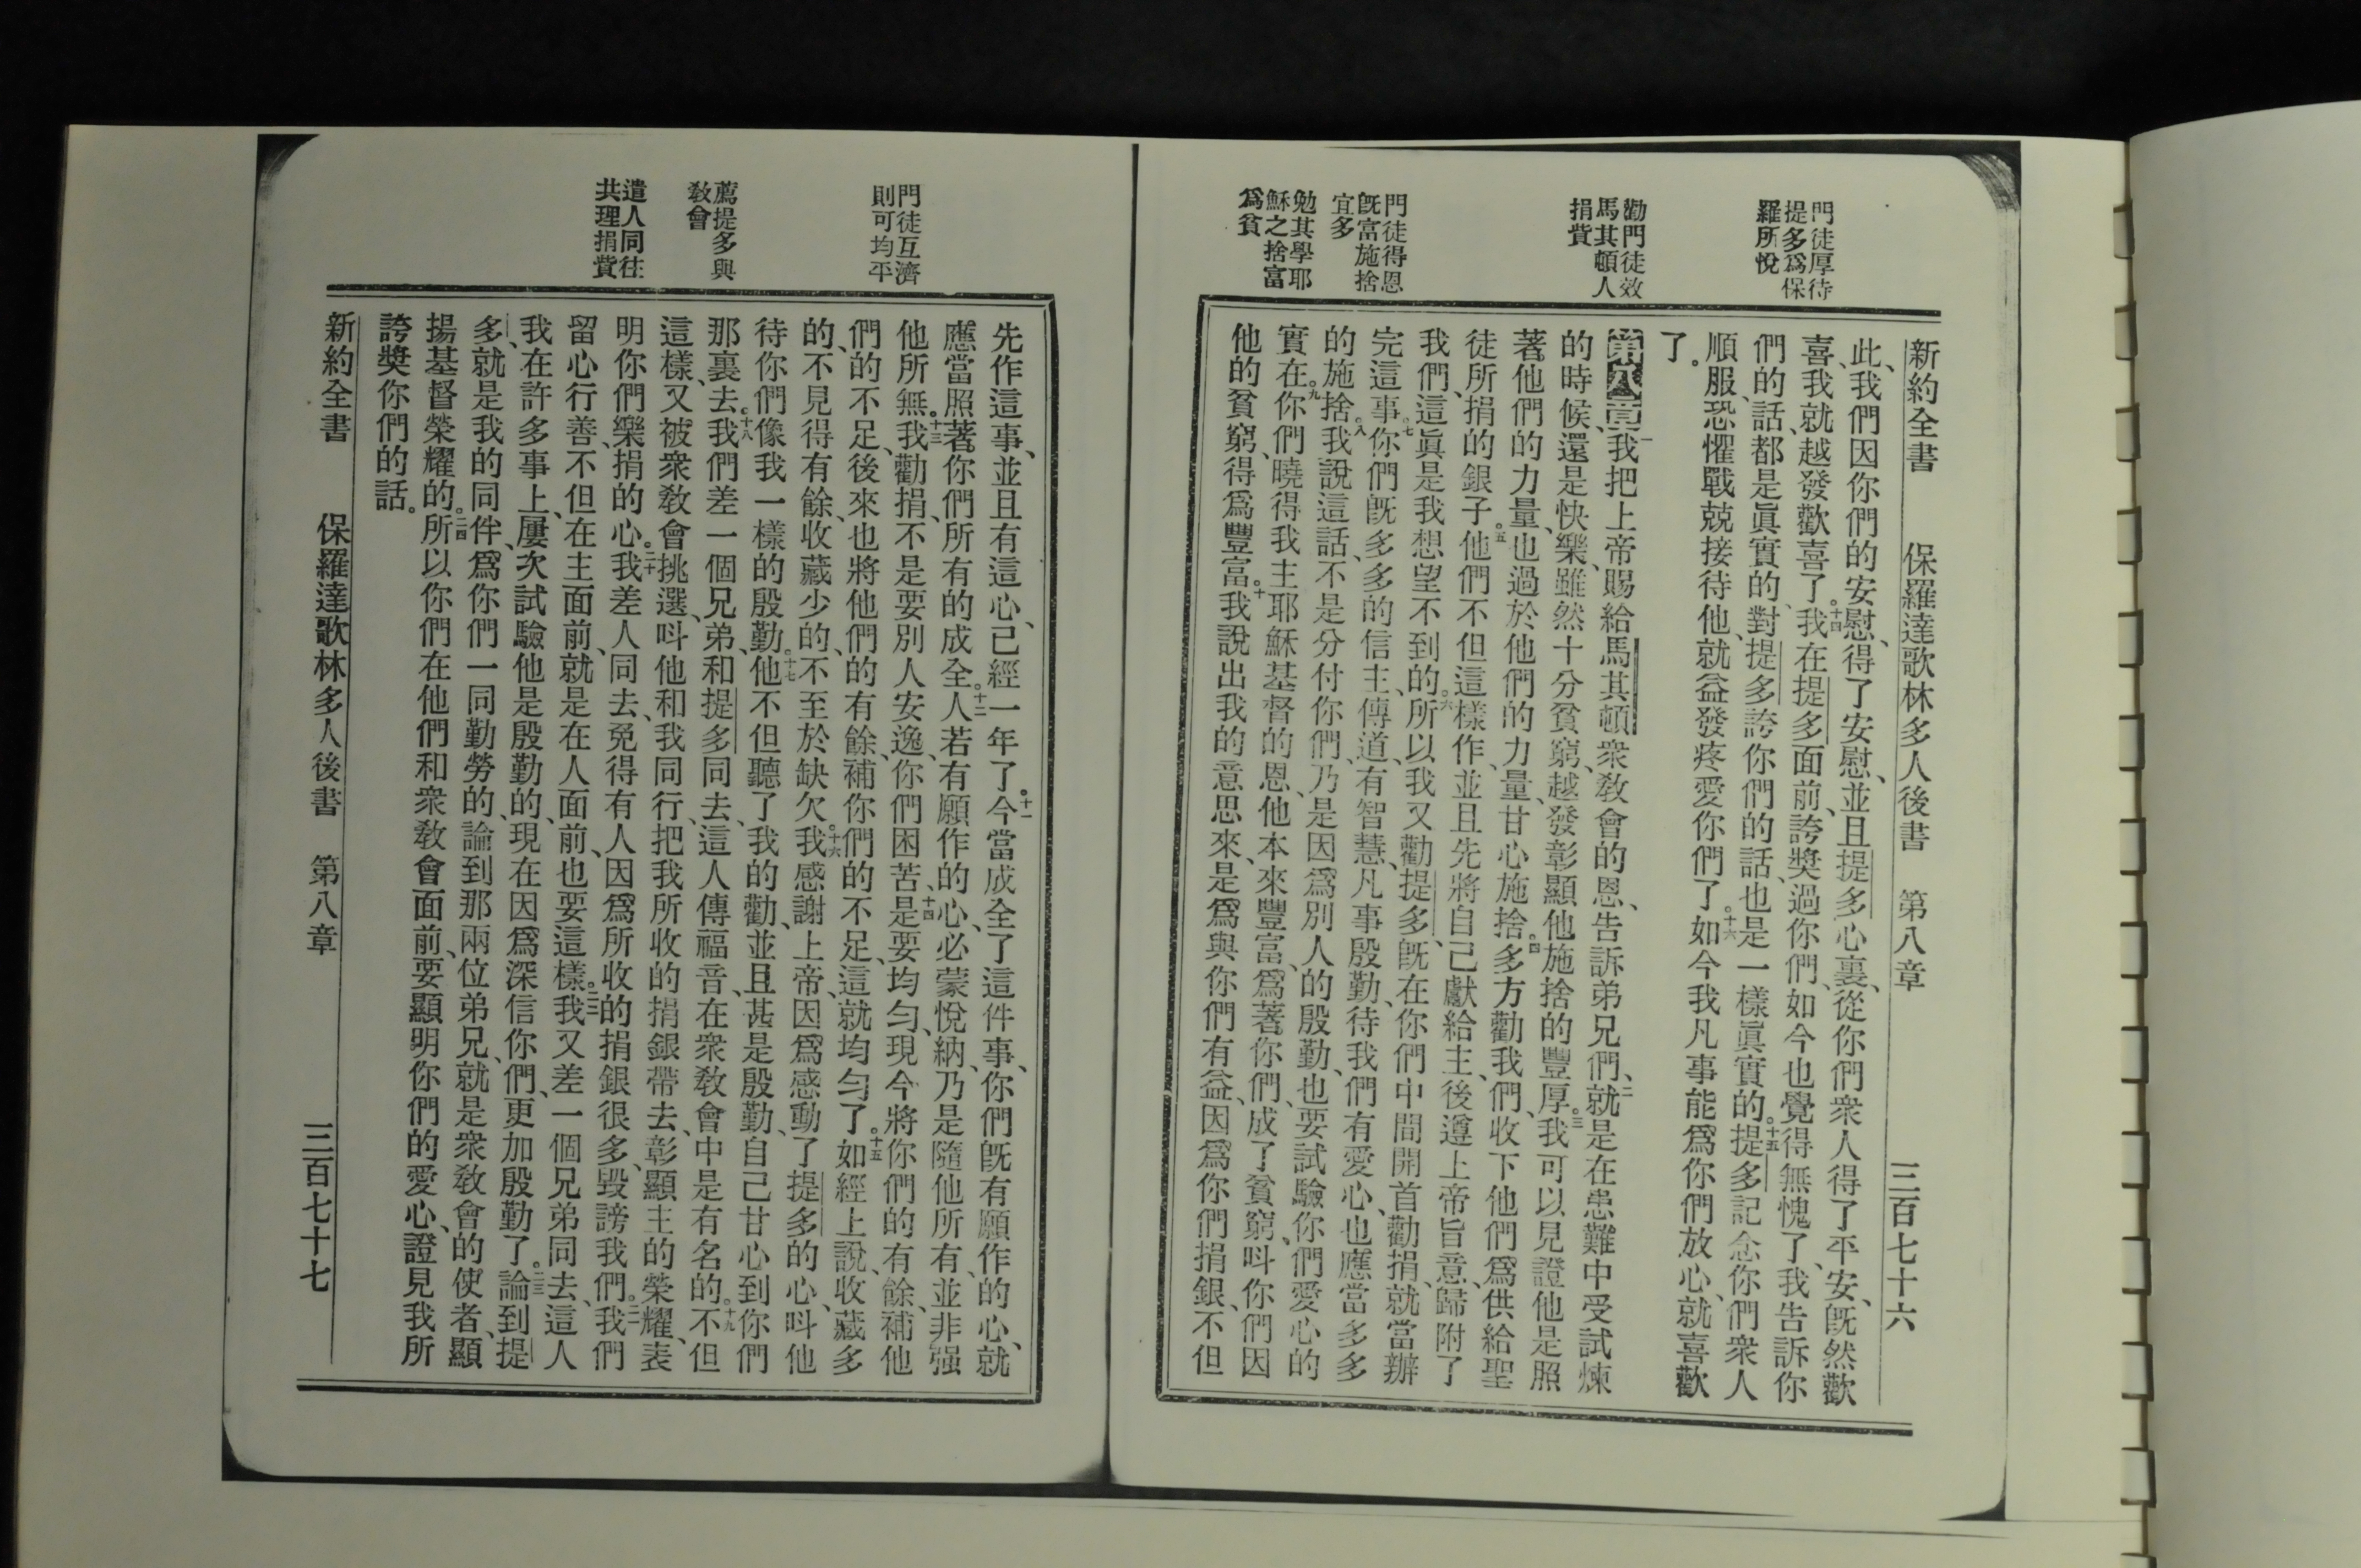 門徒厚待
提多爲保
羅所悅
勸門徒效
馬其頓人
捐貲
門徒得恩
既富施捨
宜多
勉其學耶
穌之捨富
爲貧
新約全書 保羅達歌林多人後書 第八章 三百七十六
此、我們因你們的安慰、得了安慰、並且提多心裏、從你們衆人得了平安、既然歡
喜、我就越發歡喜了。十四我在提多面前、誇獎過你們、如今也覺得無愧了、我告訴你
們的話、都是眞實的、對提多誇你們的話、也是一樣眞實的。十五提多記念你們衆人
順服、恐懼戰兢接待他、就益發疼愛你們了。十六如今我凡事能爲你們放心、就喜歡
了。
第八章一我把上帝賜給馬其頓衆敎會的恩、告訴弟兄們、二就是在患難中受試煉
的時候、還是快樂、雖然十分貧窮、越發彰顯他施捨的豐厚。三我可以見證他是照
著他們的力量、也過於他們的力量、甘心施捨。四多方勸我們、收下他們爲供給聖
徒所捐的銀子。五他們不但這樣作、並且先將自己獻給主、後遵上帝旨意、歸附了
我們、這眞是我想望不到的。六所以我又勸提多、既在你們中間開首勸捐、就當辦
完這事。七你們既多多的信主、傳道、有智慧、凡事殷勤、待我們有愛心、也應當多多
的施捨。八我說這話、不是分付你們、乃是因爲別人的殷勤、也要試驗你們愛心的
實在。九你們曉得我主耶穌基督的恩、他本來豐富、爲著你們、成了貧窮、呌你們因
他的貧窮、得爲豐富。十我說出我的意思來、是爲與你們有益、因爲你們捐銀、不但
門徒互濟
則可均平
薦提多與
敎會
遣人同往
共理捐貲
先作這事、並且有這心、已經一年了。十一今當成全了這件事、你們既有願作的心、就
應當照著你們所有的成全。十二人若有願作的心、必蒙悅納、乃是隨他所有、並非强
他所無。十三我勸捐、不是要別人安逸、你們困苦、十四是要均勻、現今將你們的有餘、補他
們的不足、後來也將他們的有餘、補你們的不足、這就均勻了。十五如經上說、收藏多
的、不見得有餘、收藏少的、不至於缺欠。十六我感謝上帝、因爲感動了提多的心、呌他
待你們像我一樣的殷勤。十七他不但聽了我的勸、並且甚是殷勤、自己甘心到你們
那裏去。十八我們差一個兄弟、和提多同去、這人傳福音、在衆敎會中是有名的。十九不但
這樣、又被衆敎會挑選、呌他和我同行、把我所收的捐銀帶去、彰顯主的榮耀、表
明你們樂捐的心。二十我差人同去、免得有人因爲所收的捐銀很多、毀謗我們。二一我們
留心行善、不但在主面前、就是在人面前、也要這樣。二二我又差一個兄弟同去、這人
我在許多事上、屢次試驗他是殷勤的、現在因爲深信你們、更加殷勤了。二三論到提
多、就是我的同伴、爲你們一同勤勞的、論到那兩位弟兄、就是衆敎會的使者、顯
揚基督榮耀的。二四所以你們在他們和衆敎會面前、要顯明你們的愛心、證見我所
誇獎你們的話。
新約全書 保羅達歌林多人後書 第八章 三百七十七